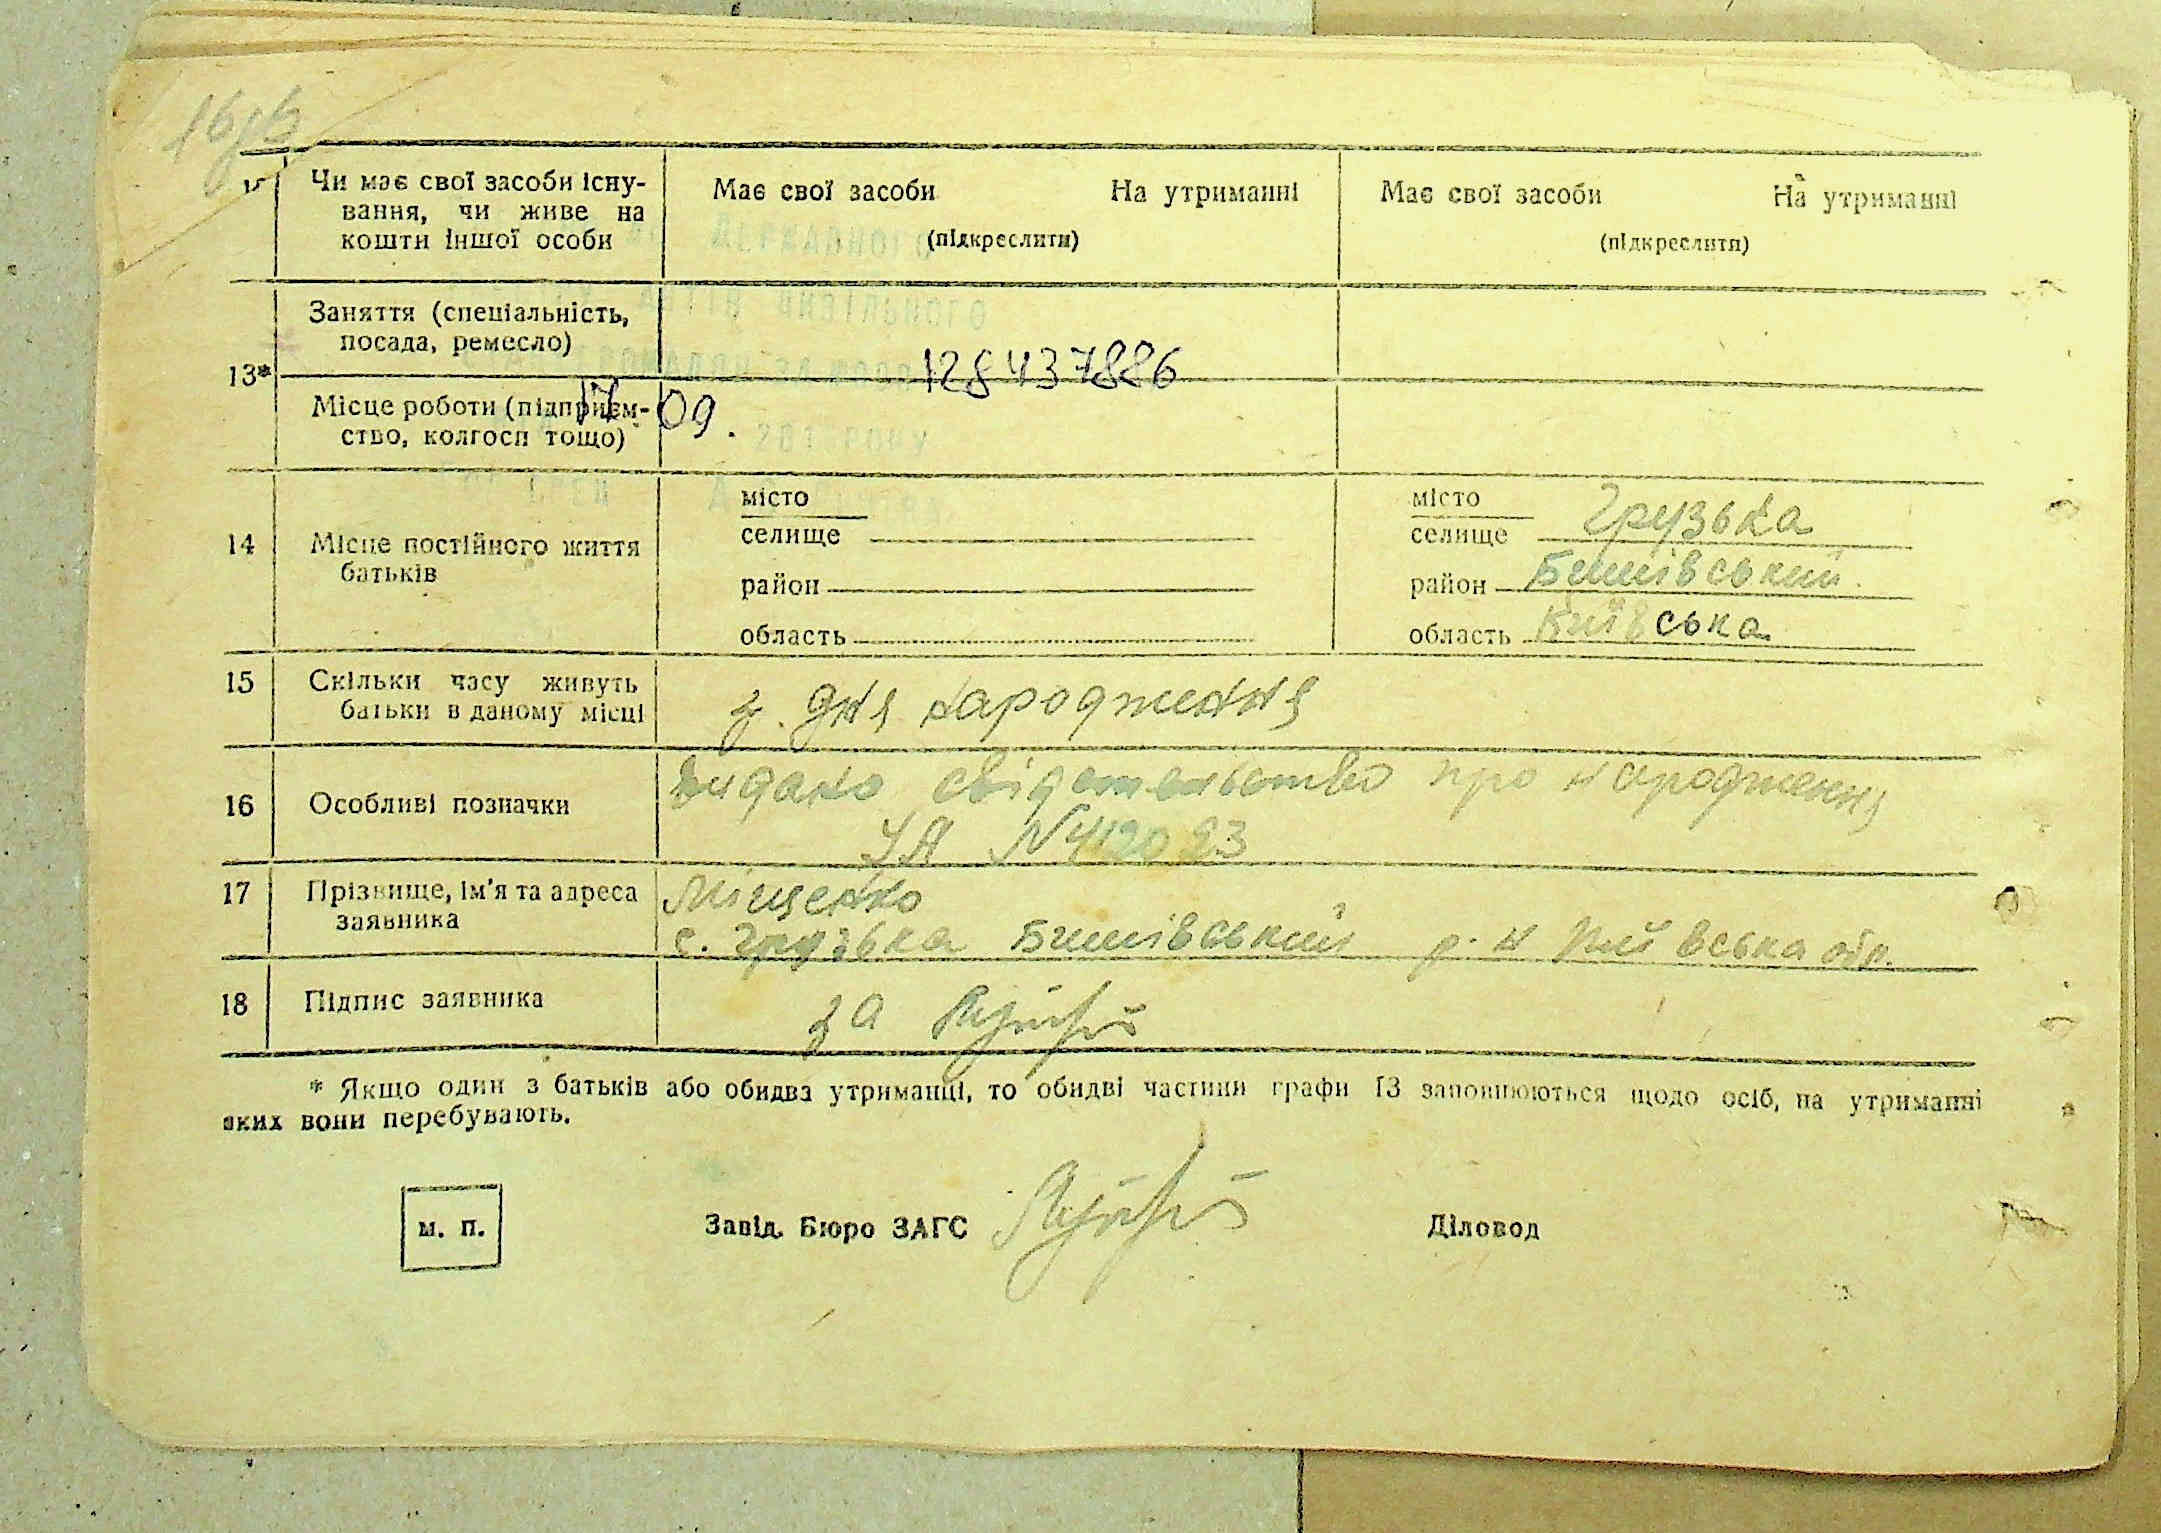 Чи має свої засоби існу-
вання, чи живе на
кошти іншої особи
Має свої засоби На утриманні
(підкреслити)
Має свої засоби На утриманні
(підкреслити)
13*
Заняття (спеціальність,
посада, ремесло)
128437886
Місце роботи (підприєм-
ство, колгосп тощо)
17. 09.
14
Місце постійного життя
батьків
місто
селище
район
область
місто
селище Грузька
район Бишівський
область Київська
15
Скільки часу живуть
батьки в даному місці
з дня народження
16
Особливі позначки
Видано свідетельство про народження
УА №412023
17
Прізвище, ім'я та адреса
заявника
Міщенко
с. Грузька Бишівський р-н Київська обл.
18
Підпис заявника
за
* Якщо один з батьків або обидва утриманці, то обидві частини графи 13 заповнюються щодо осіб, на утриманні
яких вони перебувають.
м. п.
Завід. Бюро ЗАГС
Діловод